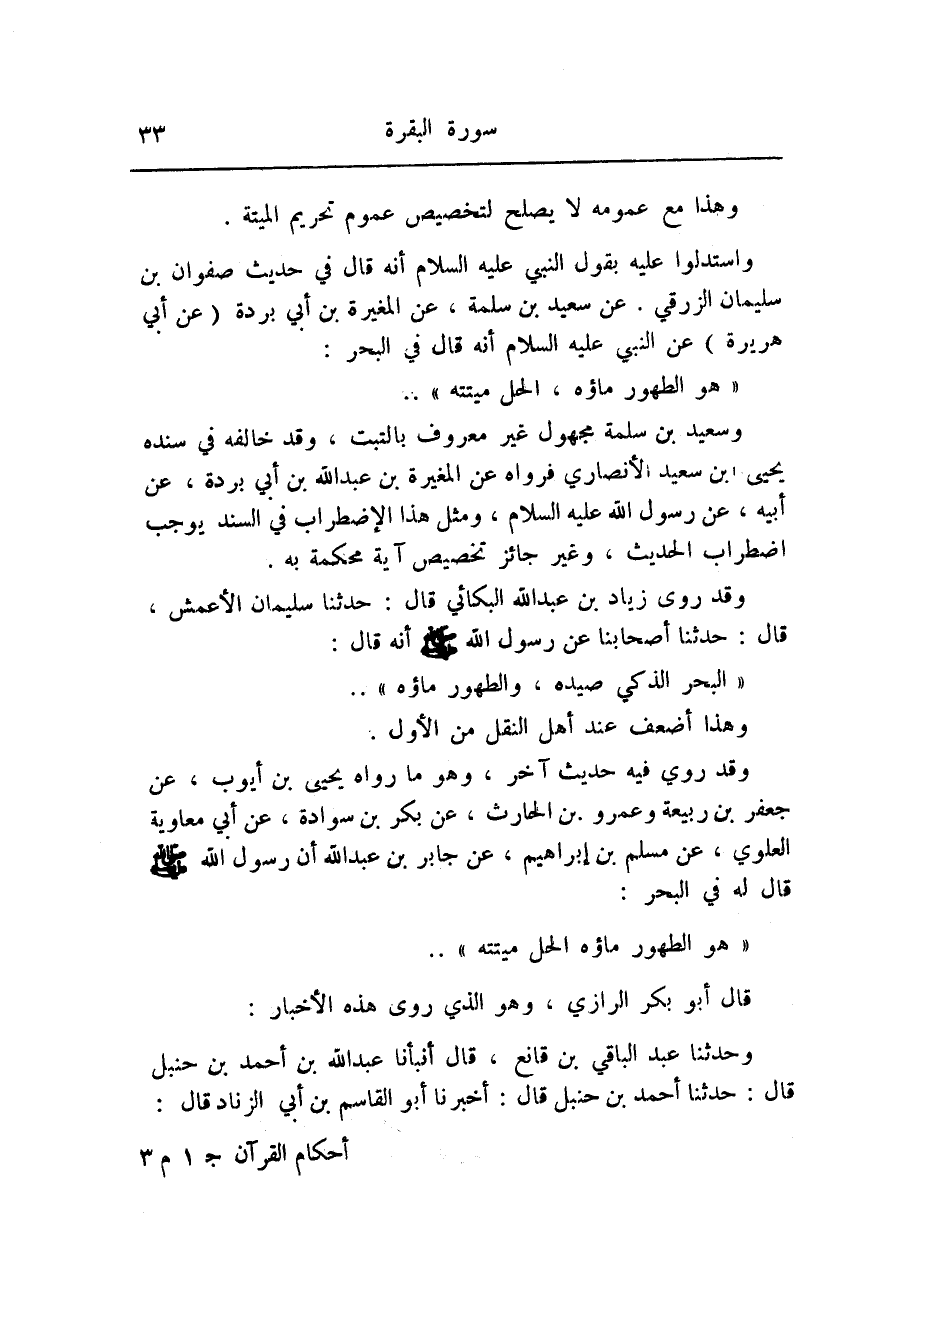 سورة البقرة ٣٣
وهذا مع عمومه لا يصلح لتخصيص عموم تحريم الميتة .
واستدلوا عليه بقول النبي عليه السلام أنه قال في حديث صفوان بن
سليمان الزرقي . عن سعيد بن سلمة ، عن المغيرة بن أبي بردة ( عن أبي
هريرة ) عن النبي عليه السلام أنه قال في البحر :
« هو الطهور ماؤه ، الحل ميتته » ..
وسعيد بن سلمة مجهول غير معروف بالتبت ، وقد خالفه في سنده
يحيى ابن سعيد الأنصاري فرواه عن المغيرة بن عبدالله بن أبي بردة ، عن
أبيه ، عن رسول الله عليه السلام ، ومثل هذا الإضطراب في السند يوجب
اضطراب الحديث ، وغير جائز تخصيص آية محكمة به .
وقد روى زياد بن عبدالله البكائي قال : حدثنا سليمان الأعمش ،
قال : حدثنا أصحابنا عن رسول الله ﷺ أنه قال :
« البحر الذكي صيده ، والطهور ماؤه » ..
وهذا أضعف عند أهل النقل من الأول .
وقد روي فيه حديث آخر ، وهو ما رواه يحيى بن أيوب ، عن
جعفر بن ربيعة وعمرو .بن الحارث ، عن بكر بن سوادة ، عن أبي معاوية
العلوي ، عن مسلم بن إبراهيم ، عن جابر بن عبدالله أن رسول الله ﷺ
قال له في البحر :
« هو الطهور ماؤه الحل ميتته » ..
قال أبو بكر الرازي ، وهو الذي روى هذه الأخبار :
وحدثنا عبد الباقي بن قانع ، قال أنبأنا عبدالله بن أحمد بن حنبل
قال : حدثنا أحمد بن حنبل قال : أخبرنا أبو القاسم بن أبي الزناد قال :
أحكام القرآن جـ ١ م ٣